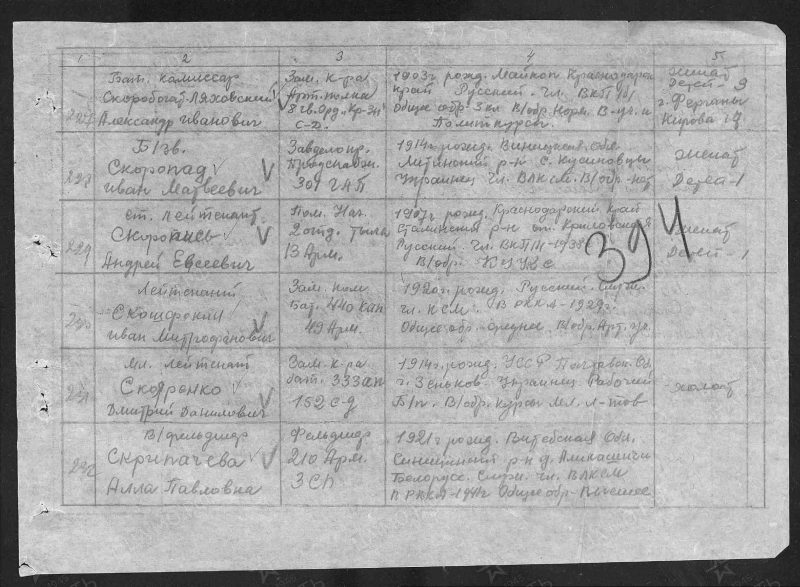 1 2 3 4 5
Бат. комиссар
Скоробогат-Ляховский
Александр Иванович
Зам. к-ра
Арт. полка
8 гв. Орд. "Кр-Зн"
С-Д.
1903г рожд. Майкоп Краснодарск
край Русский. Чл. ВКП(б)
Общее обр 3 кл В/обр. Норм. В-уч. и
Политкурсы.
женат
Детей-
г. Ферганы
Кирова 17
228
Б/зв.
Скоропад
Иван Матвеевич
Завделопр.
Продснабж.
301 ГАП
1914г. рожд. Винницкая Обл.
Литинский р-н с. Кусиковцы
Украинец Чл. ВЛКСМ. В/обр-нет
женат
Детей-1
229
ст. лейтенант
Скоропись
Андрей Евсеевич
Пом. Нач.
2 отд. тыла
13 Арм.
1907г рожд. Краснодарский край
Сталинский р-н ст. Крыловская
Русский. Чл. ВКП/б/-1938
В/обр. КУКС
женат
Детей-1
394
230
Лейтенант
Иван Митрофанович
Зам. ком.
Бат. 440 кап
49 Арм.
1920г. рожд. Русский.
чл. КСМ. В РККА-
Общее обр. В/обр. Арт. уч.
231
мл. лейтенант
Скляренко
Дмитрий Данилович
Зам. к-ра
бат. 333 ап
152 с-д
1914г. рожд. УССР Полтавск. Об
г. Зеньков. Украинец Рабочий
Б/п. В/обр. Курсы мл. л-тов
холост
232
В/фельдшер
Скрипачева
Алла Павловна
Фельдшер
210 Арм.
ЗСП
1921г рожд. Витебская Обл.
р-н д.
Белорус. Служ. чл. ВЛКСМ
в РККА-1941г Общее обр-